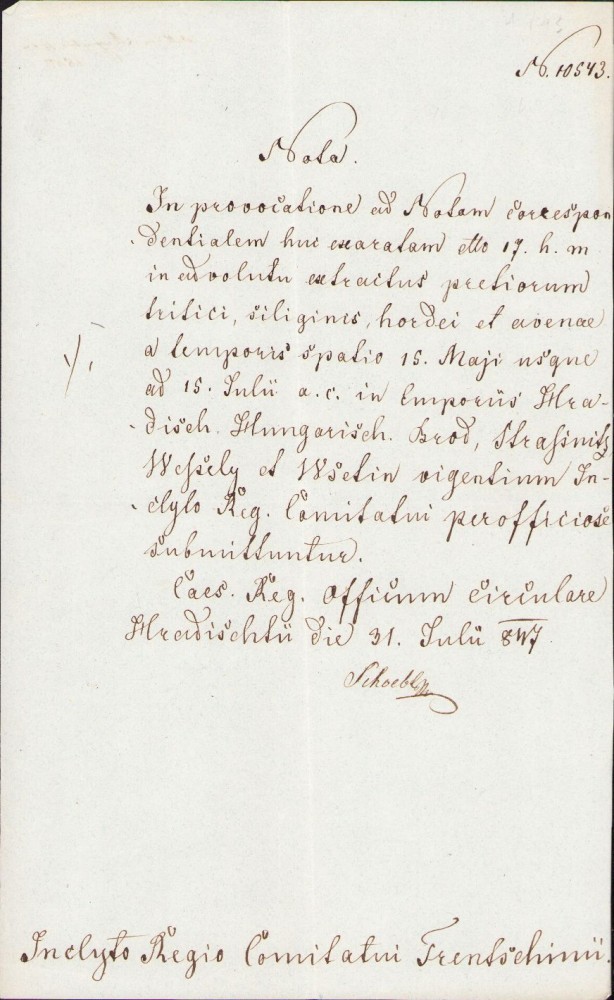 N. 10543.
Nota.
In provocatione ad Notam correspon
dentialem huc exaratam dtto 17. h. m
in advolutu extractus pretiorum
tritici, siliginis, hordei et avenae
a temporis spatio 15. Maji usque
ad 15. Julii a. c. in Emporiis Hra-
disch. Hungarisch. Brod, Straßnitz
Weßely et Wsetin vigentium In-
clyto Reg. Comitatui perofficiose
submittuntur.
Caes. Reg. Officium circulare
Hradischtii die 31. Julii 847
Inclyto Regio Comitatui Trentschinii.